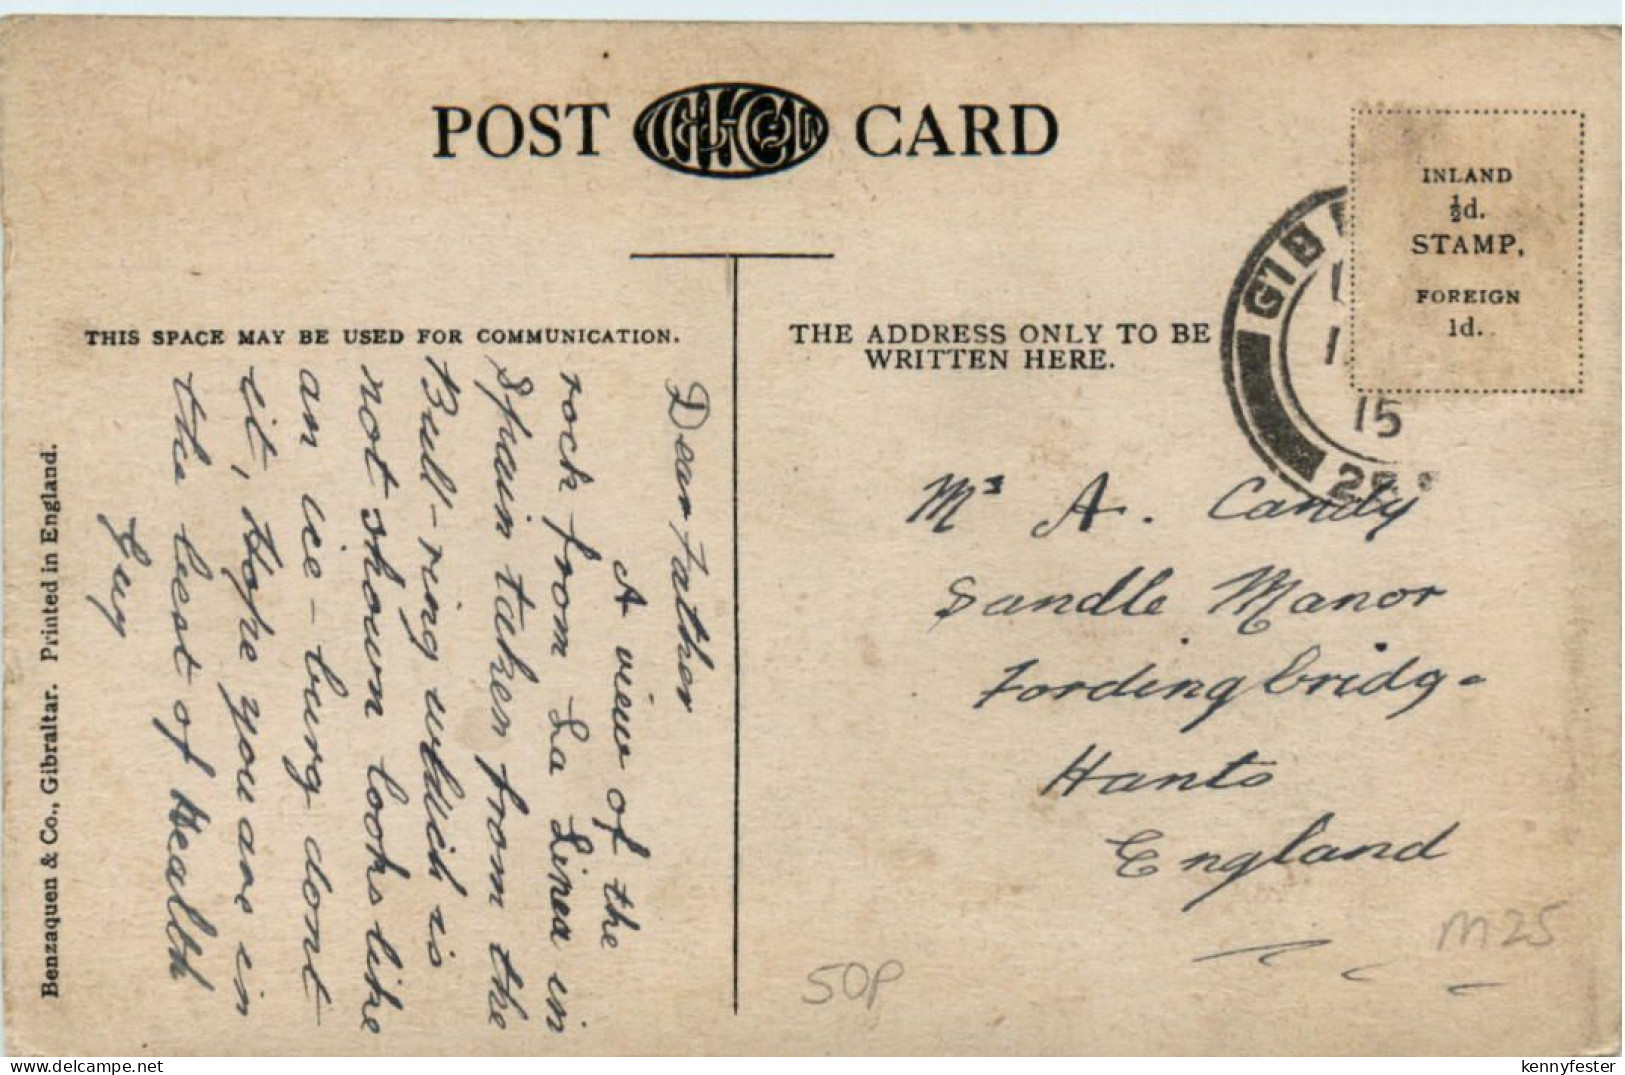 POST CARD
INLAND
½d.
STAMP.
FOREIGN
1d.
GIB
15
THIS SPACE MAY BE USED FOR COMMUNICATION.
THE ADDRESS ONLY TO BE
WRITTEN HERE.
Dear Father
A view of the
rock from La Linea in
Spain taken from the
Bull-ring which is
not shown looks like
an ice-burg dont
it, Hope you are in
the best of Health
Guy
Mr A. Candy
Sandle Manor
Fordingbridge
Hants
England
50P
M25
Benzaquen & Co., Gibraltar. Printed in England.
www.delcampe.net
kennyfester